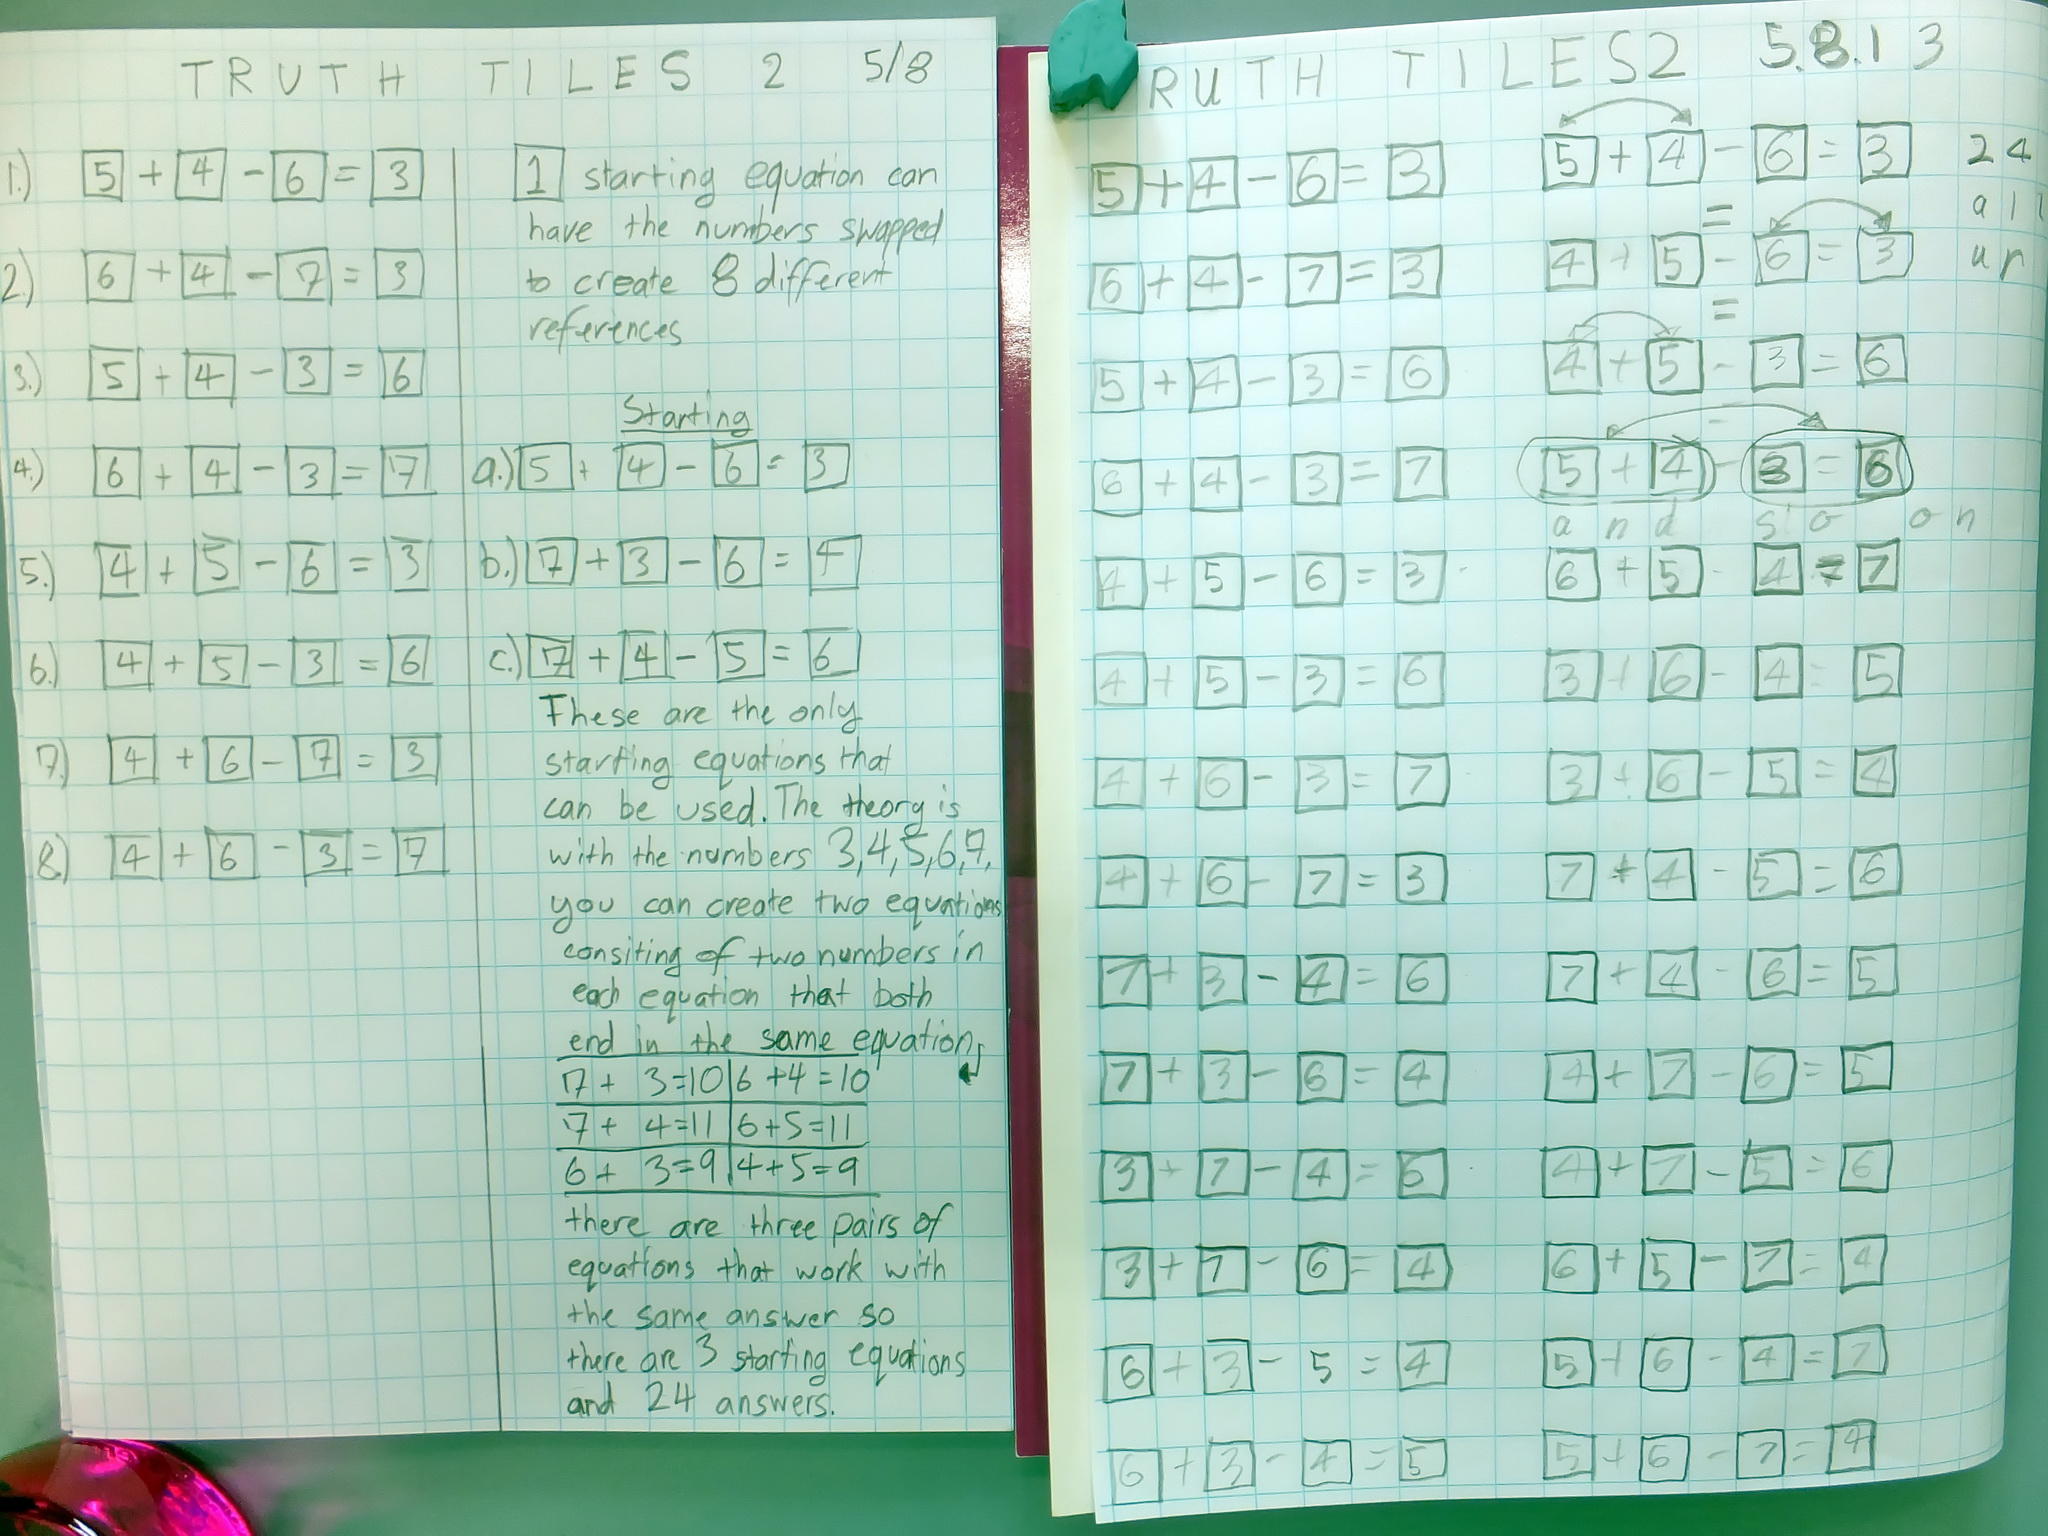 TRUTH TILES 2 5/8
1.) 5 + 4 - 6 = 3
2.) 6 + 4 - 7 = 3
3.) 5 + 4 - 3 = 6
4.) 6 + 4 - 3 = 7
5.) 4 + 5 - 6 = 3
6.) 4 + 5 - 3 = 6
7.) 4 + 6 - 7 = 3
8.) 4 + 6 - 3 = 7
1 starting equation can
have the numbers swapped
to create 8 different
references
Starting
a.) 5 + 4 - 6 = 3
b.) 7 + 3 - 6 = 4
c.) 7 + 4 - 5 = 6
These are the only
starting equations that
can be used. The theory is
with the numbers 3,4,5,6,7,
you can create two equations
consiting of two numbers in
each equation that both
end in the same equation,
7 + 3=10 6 +4 =10
7 + 4=11 6+5=11
6 + 3=9 4+5=9
there are three pairs of
equations that work with
the same answer so
there are 3 starting equations
and 24 answers.
RUTH TILES2 5.8.13
5 + 4 - 6 = 3
6 + 4 - 7 = 3
5 + 4 - 3 = 6
6 + 4 - 3 = 7
4 + 5 - 6 = 3
4 + 5 - 3 = 6
4 + 6 - 3 = 7
4 + 6 - 7 = 3
7 + 3 - 4 = 6
7 + 3 - 6 = 4
3 + 7 - 4 = 6
3 + 7 - 6 = 4
6 + 3 - 5 = 4
6 + 3 - 4 = 5
5 + 4 - 6 = 3
=
4 + 5 - 6 = 3
=
4 + 5 - 3 = 6
5 + 4 - 3 = 6
and so on
6 + 5 - 4 = 7
3 + 6 - 4 = 5
3 + 6 - 5 = 4
7 + 4 - 5 = 6
7 + 4 - 6 = 5
4 + 7 - 6 = 5
4 + 7 - 5 = 6
6 + 5 - 7 = 4
5 + 6 - 4 = 7
5 + 6 - 7 = 4
24